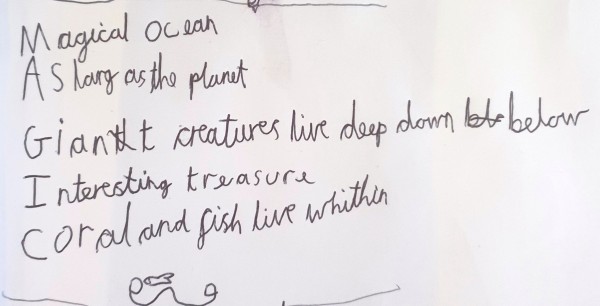 Magical ocean
As larg as the planet
Giant creatures live deep down below
Interesting treasure
Coral and fish live whithin